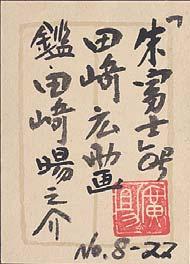 「朱富士」6号
田崎広助画
鑑 田崎暘之介
廣助
No. 8-22